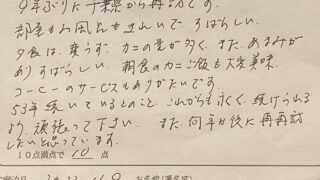 9年ぶりに千葉県から再訪です。
部屋もお風呂もきれいで、すばらしい。
夕食は、変らず、カニの量が多く、また、あまみが
あり、すばらしい。朝食のカニご飯も大変美味。
コーヒーのサービスもありがたいです。
53年続いているとのこと、これからも永く、続けられる
よう、頑張って下さい。また、何年か後に再再訪
したいと思っています。
10点満点で 10 点